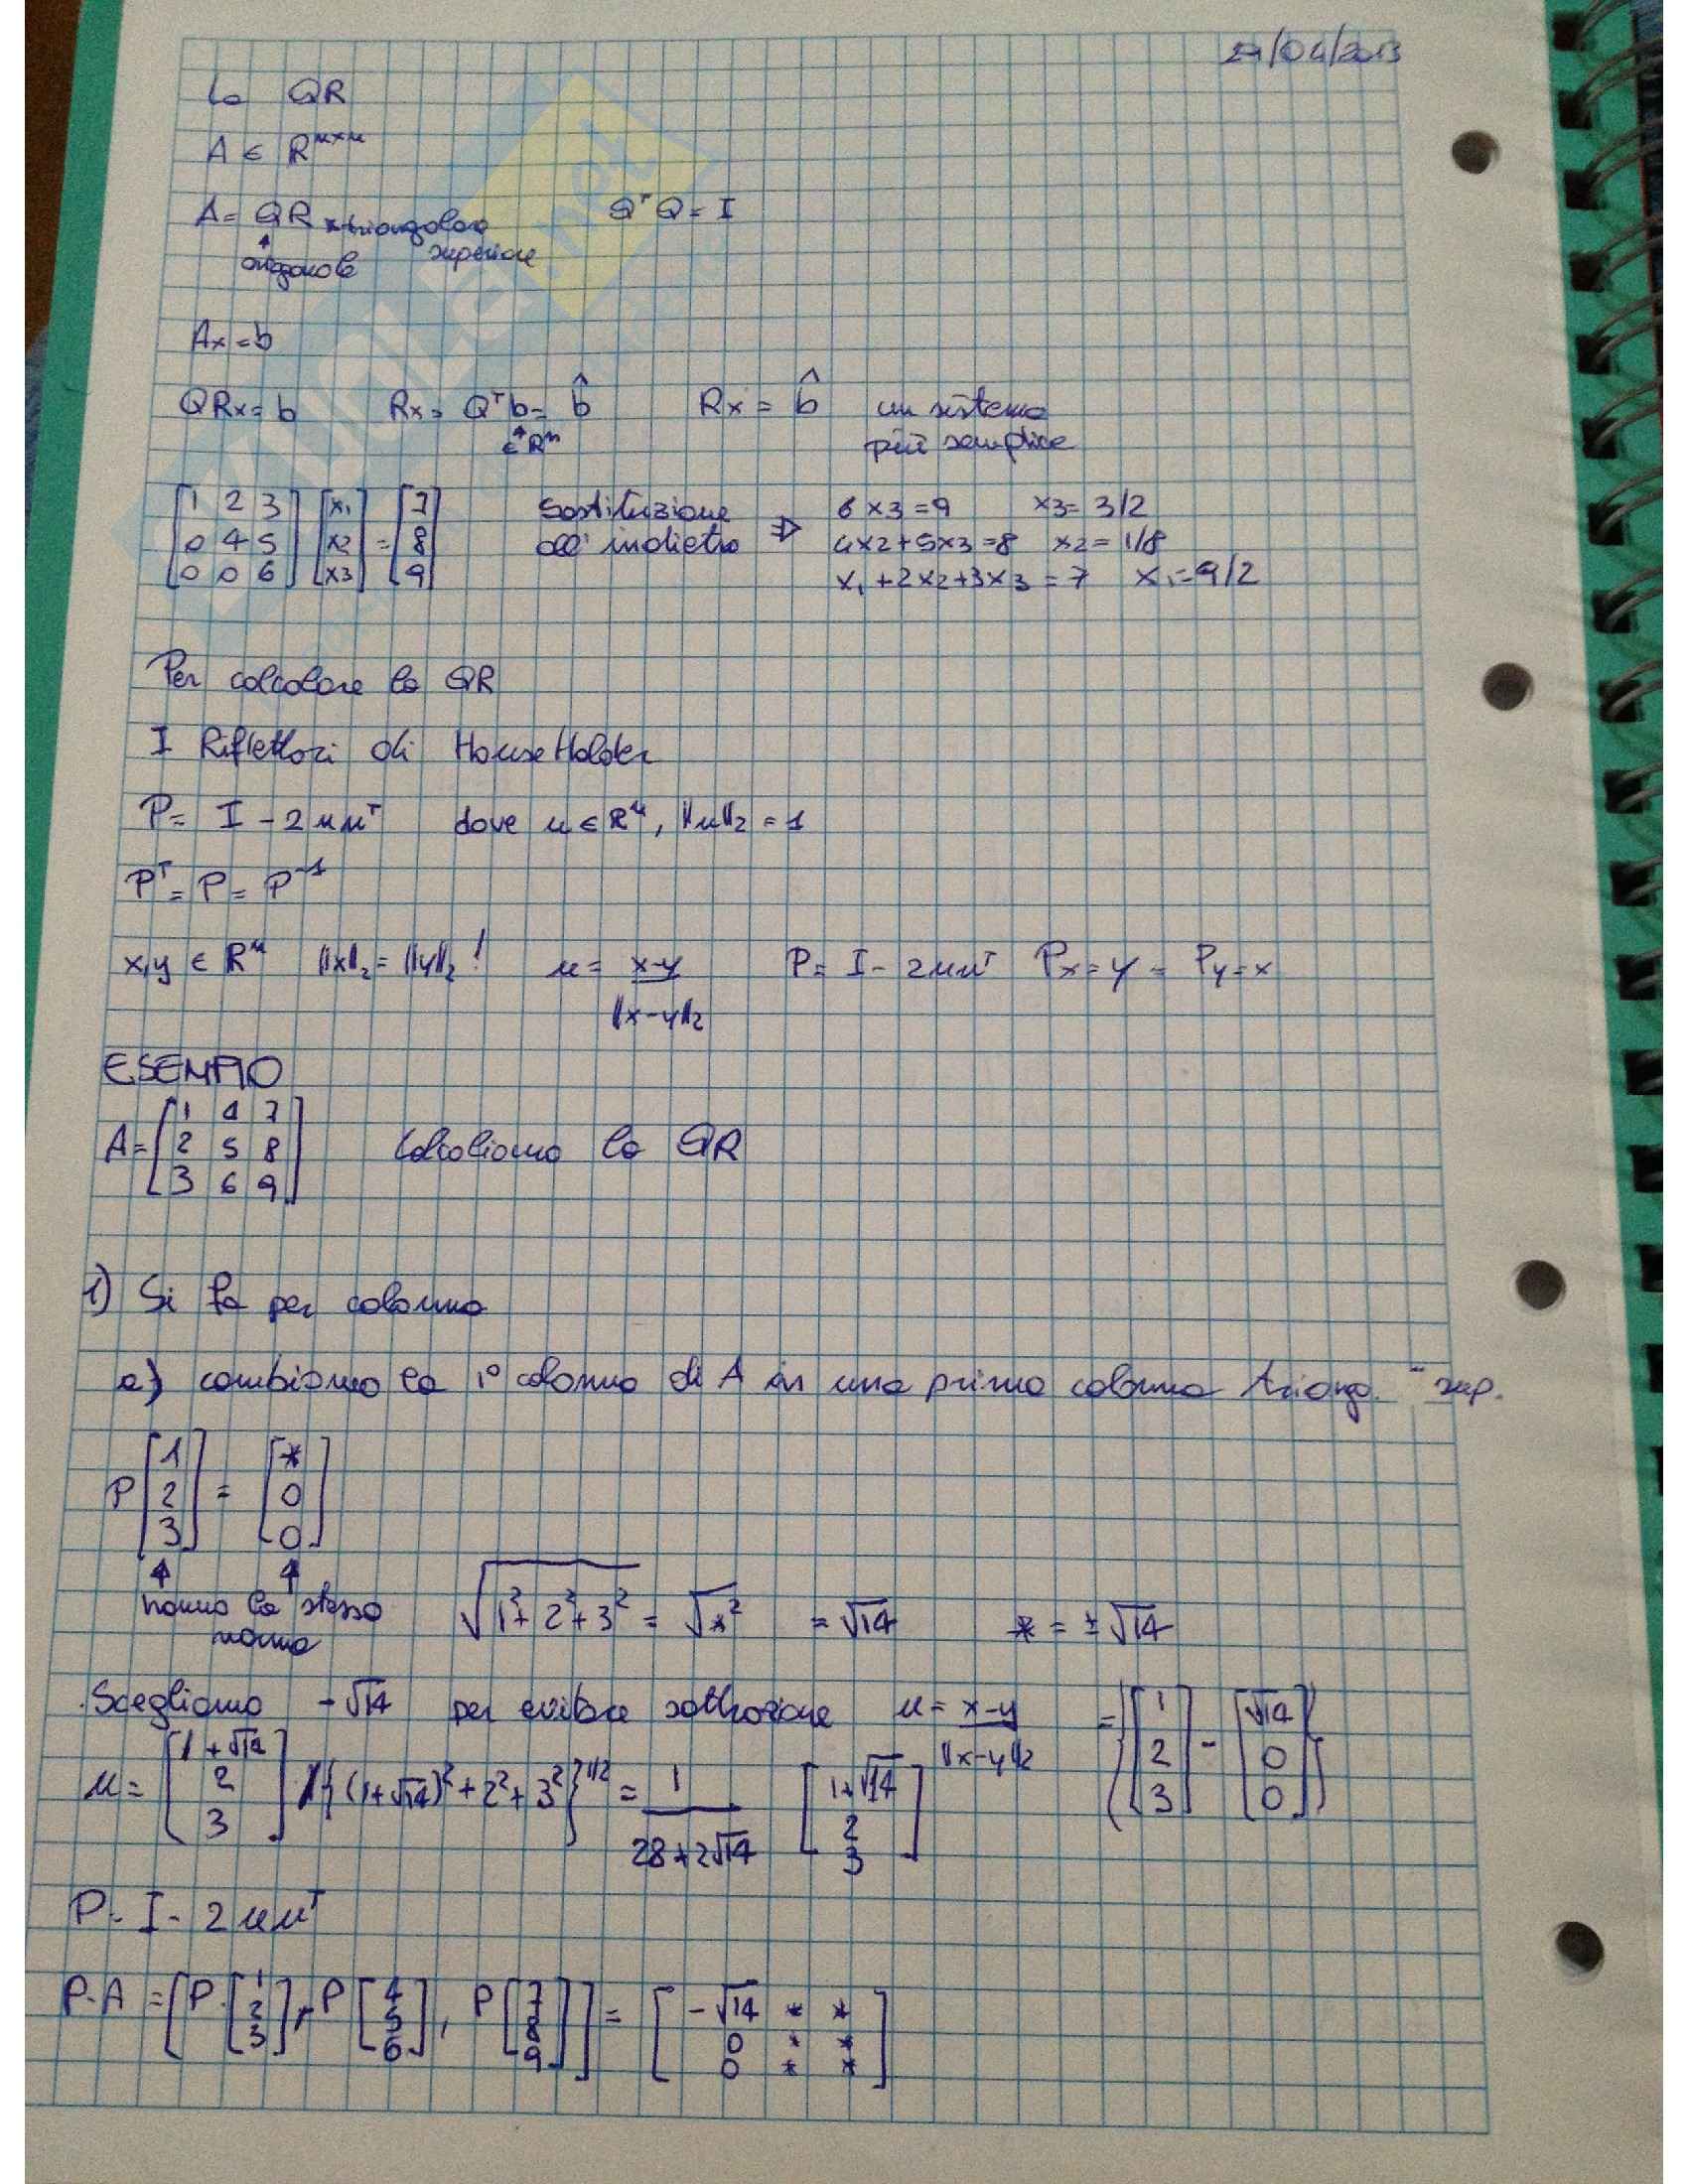 29/04/2013
La QR
A ∈ R^{n×n}
A = QR ← triangolare superiore    Q^T Q = I
↑ ortogonale
Ax = b
QRx = b    Rx = Q^T b = b̂    Rx = b̂    un sistema
∈ R^n    più semplice
[1 2 3; 0 4 5; 0 0 6] [x1; x2; x3] = [7; 8; 9]    Sostituzione all'indietro ⇒
6x3 = 9    x3 = 3/2
4x2 + 5x3 = 8    x2 = 1/8
x1 + 2x2 + 3x3 = 7    x1 = 9/2
Per calcolare la QR
I Riflettori di HouseHolder
P = I - 2uu^T    dove u ∈ R^n, ||u||2 = 1
P^T = P = P^{-1}
x,y ∈ R^n    ||x||2 = ||y||2 !    u = x-y / ||x-y||2    P = I - 2uu^T    Px = y = Py = x
ESEMPIO
A = [1 4 7; 2 5 8; 3 6 9]    Calcoliamo la QR
1) Si fa per colonna
a) cambiamo la 1° colonna di A in una prima colonna triango. sup.
P [1; 2; 3] = [*; 0; 0]
↑ ↑
hanno la stessa norma    √(1² + 2² + 3²) = √*² = √14    * = ±√14
Scegliamo -√14 per evitare sottrazione    u = x-y / ||x-y||2 = ([1; 2; 3] - [√14; 0; 0])
u = [1+√14; 2; 3] / {(1+√14)² + 2² + 3²}^{1/2} = 1 / 28+2√14 [1+√14; 2; 3]
P = I - 2uu^T
P·A = [P·[1; 2; 3], P[4; 5; 6], P[7; 8; 9]] = [-√14 * *; 0 * *; 0 * *]